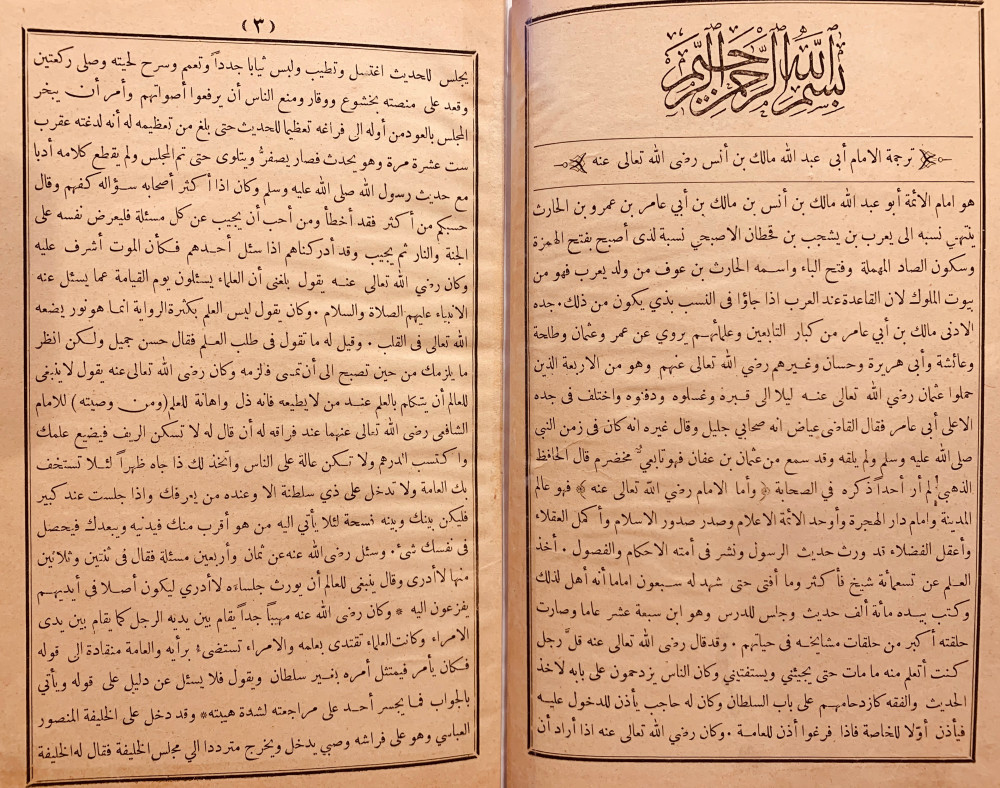 بسم الله الرحمن الرحيم
ترجمة الامام أبى عبد الله مالك بن أنس رضى الله تعالى عنه
هو امام الأئمة أبو عبد الله مالك بن أنس بن مالك بن أبي عامر بن عمرو بن الحارث
ينتهي نسبه الى يعرب بن يشجب بن قحطان الاصبحي نسبة لذى أصبح بفتح الهمزة
وسكون الصاد المهملة وفتح الباء واسمه الحارث بن عوف من ولد يعرب فهو من
بيوت الملوك لان القاعدة عند العرب اذا جاؤا فى النسب بذي يكون من ذلك. جده
الادنى مالك بن أبي عامر من كبار التابعين وعلمائهم يروي عن عمر وعثمان وطلحة
وعائشة وأبى هريرة وحسان وغيرهم رضي الله تعالى عنهم وهو من الاربعة الذين
حملوا عثمان رضي الله تعالى عنه ليلا الى قبره وغسلوه ودفنوه واختلف فى جده
الاعلى أبى عامر فقال القاضى عياض انه صحابي جليل وقال غيره انه كان فى زمن النبي
صلى الله عليه وسلم ولم يلقه وقد سمع من عثمان بن عفان فهو تابعي مخضرم قال الحافظ
الذهبي لم أر أحداً ذكره فى الصحابة ﴿ وأما الامام رضي الله تعالى عنه ﴾ فهو عالم
المدينة وامام دار الهجرة وأوحد الأئمة الاعلام وصدر صدور الاسلام وأكمل العقلاء
وأعقل الفضلاء قد ورث حديث الرسول ونشر فى أمته الاحكام والفصول. أخذ
العلم عن تسعمائة شيخ فأكثر وما أفتى حتى شهد له سبعون اماما أنه أهل لذلك
وكتب بيده مائة ألف حديث وجلس للدرس وهو ابن سبعة عشر عاما وصارت
حلقته أكبر من حلقات مشايخه فى حياتهم. وقد قال رضى الله تعالى عنه قلّ رجل
كنت أتعلم منه ما مات حتى يجيئني ويستفتيني وكان الناس يزدحمون على بابه لاخذ
الحديث والفقه كازدحامهم على باب السلطان وكان له حاجب يأذن للدخول عليه
فيأذن أوّلا للخاصة فاذا فرغوا أذن للعامة. وكان رضي الله تعالى عنه اذا أراد أن
(٣)
يجلس للحديث اغتسل وتطيب ولبس ثيابا جدداً وتعمم وسرح لحيته وصلى ركعتين
وقعد على منصته بخشوع ووقار ومنع الناس أن يرفعوا أصواتهم وأمر أن يبخر
المجلس بالعود من أوله الى فراغه تعظيما للحديث حتى بلغ من تعظيمه له أنه لدغته عقرب
ست عشرة مرة وهو يحدث فصار يصفرّ ويتلوى حتى تم المجلس ولم يقطع كلامه أدبا
مع حديث رسول الله صلى الله عليه وسلم وكان اذا أكثر أصحابه سؤاله كفهم وقال
حسبكم من أكثر فقد أخطأ ومن أحب أن يجيب عن كل مسئلة فليعرض نفسه على
الجنة والنار ثم يجيب وقد أدركناهم اذا سئل أحدهم فكأن الموت أشرف عليه
وكان رضي الله تعالى عنه يقول بلغنى أن العلماء يسئلون يوم القيامة عما يسئل عنه
الانبياء عليهم الصلاة والسلام. وكان يقول ليس العلم بكثرة الرواية انما هو نور يضعه
الله تعالى فى القلب. وقيل له ما تقول فى طلب العلم فقال حسن جميل ولكن انظر
ما يلزمك من حين تصبح الى أن تمسى فالزمه وكان رضى الله تعالى عنه يقول لا ينبغى
للعالم أن يتكلم بالعلم عند من لا يطيعه فانه ذل واهانة للعلم (ومن وصيته) للامام
الشافعى رضى الله تعالى عنهما عند فراقه له أن قال له لا تسكن الريف فيضيع علمك
واكتسب الدرهم ولا تكن عالة على الناس واتخذ لك ذا جاه ظهراً لئلا تستخف
بك العامة ولا تدخل على ذي سلطنة الا وعنده من يعرفك واذا جلست عند كبير
فليكن بينك وبينه نسحة لئلا يأتي اليه من هو أقرب منك فيدنيه ويبعدك فيحصل
فى نفسك شئ. وسئل رضى الله عنه عن ثمان وأربعين مسئلة فقال فى ثنتين وثلاثين
منها لا أدرى وقال ينبغى للعالم أن يورث جلساءه لا أدري ليكون أصلا فى أيديهم
يفزعون اليه * وكان رضى الله عنه مهيباً جداً يقام بين يديه الرجل كما يقام بين يدى
الامراء وكانت العلماء تقتدى بعلمه والامراء تستضئ برأيه والعامة منقادة الى قوله
فكان يأمر فيمتثل أمره بغير سلطان ويقول فلا يسئل عن دليل على قوله ويأتي
بالجواب فما يجسر أحد على مراجعته لشدة هيبته * وقد دخل على الخليفة المنصور
العباسي وهو على فراشه وصبي يدخل ويخرج مترددا الى مجلس الخليفة فقال له الخليفة